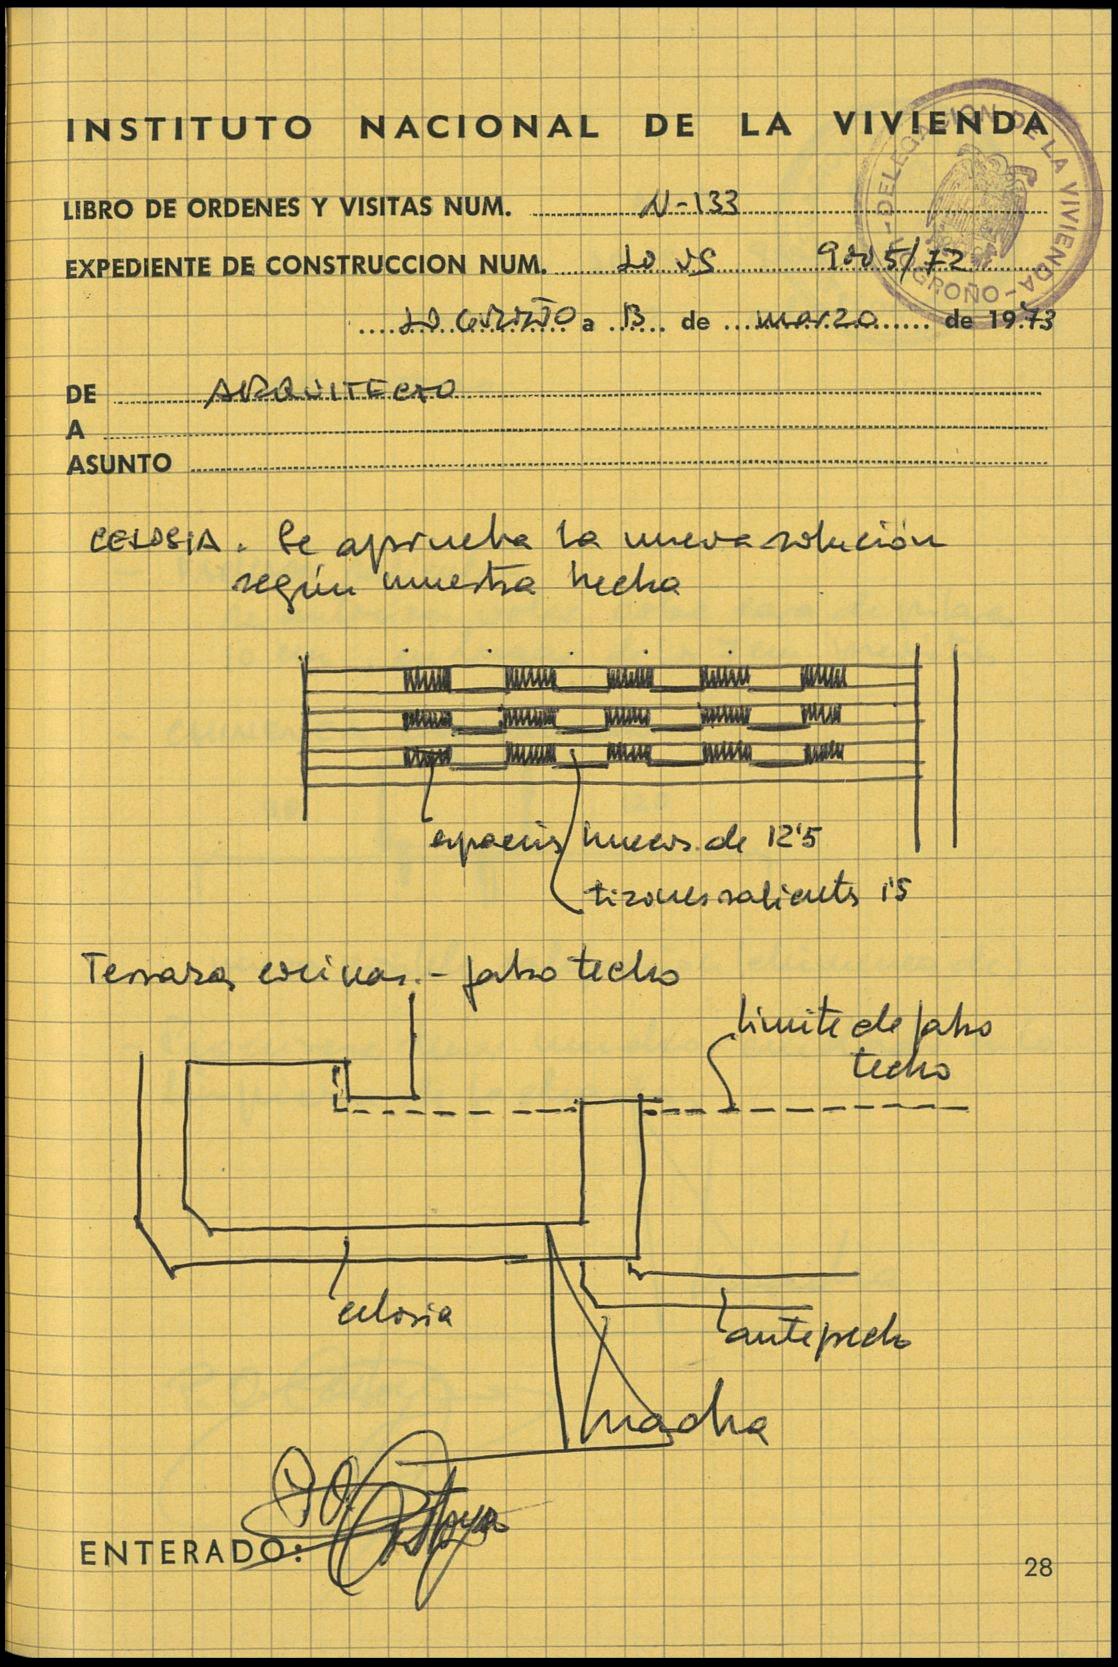 INSTITUTO NACIONAL DE LA VIVIENDA
DELEGACION DE LA VIVIENDA - LOGROÑO -
LIBRO DE ORDENES Y VISITAS NUM. N-133
EXPEDIENTE DE CONSTRUCCION NUM. LO VS 9005/72
LOGROÑO a 13 de marzo de 1973
DE ARQUITECTO
A
ASUNTO
CELOSIA. Se aprueba la nueva solución
según muestra hecha
espacios huecos de 12'5
tizones salientes 1'5
Terrazas cocinas.- falso techo
limite de falso
techo
celosia
antepecho
ENTERADO:
28